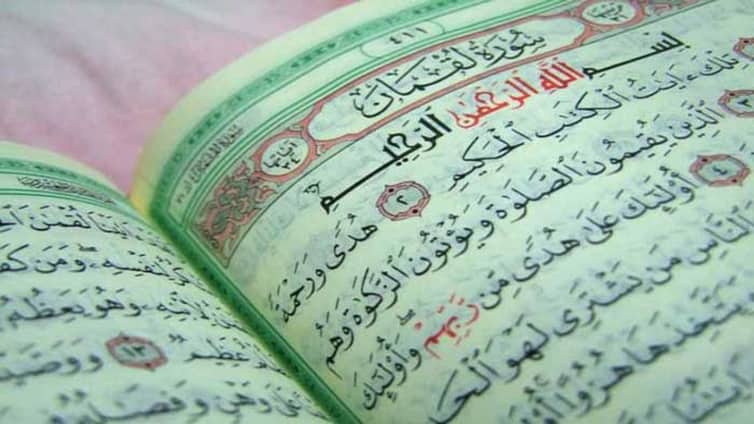 ٤١١
سُورَةُ لُقْمَان
بِسْمِ اللَّهِ الرَّحْمَٰنِ الرَّحِيمِ
تِلْكَ ءَايَٰتُ الْكِتَٰبِ الْحَكِيمِ ٢ هُدًى وَرَحْمَةً
الَّذِينَ يُقِيمُونَ الصَّلَوٰةَ وَيُؤْتُونَ الزَّكَوٰةَ وَهُم
٤ أُولَٰئِكَ عَلَىٰ هُدًى مِّن رَّبِّهِمْ وَأُولَٰئِكَ
النَّاسِ مَن يَشْتَرِي لَهْوَ الْحَ
يَتَّخِذَهَا هُزُوًا
لُقْمَٰنَ الْ
لِنَفْسِهِ وَمَن
وَهُوَ يَعِظُهُ
عَظِيمٌ ١٣ وَوَصَّيْ
عَلَىٰ وَهْنٍ وَفِصَٰلُهُ